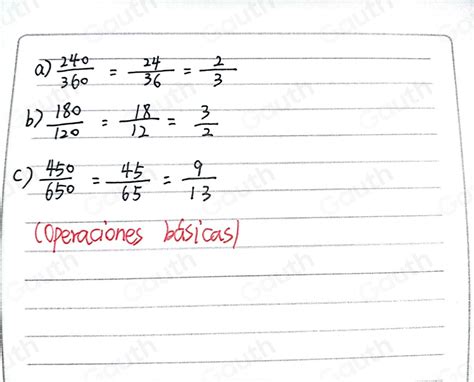 a) 240/360 = 24/36 = 2/3
b) 180/120 = 18/12 = 3/2
c) 450/650 = 45/65 = 9/13
(Operaciones básicas)